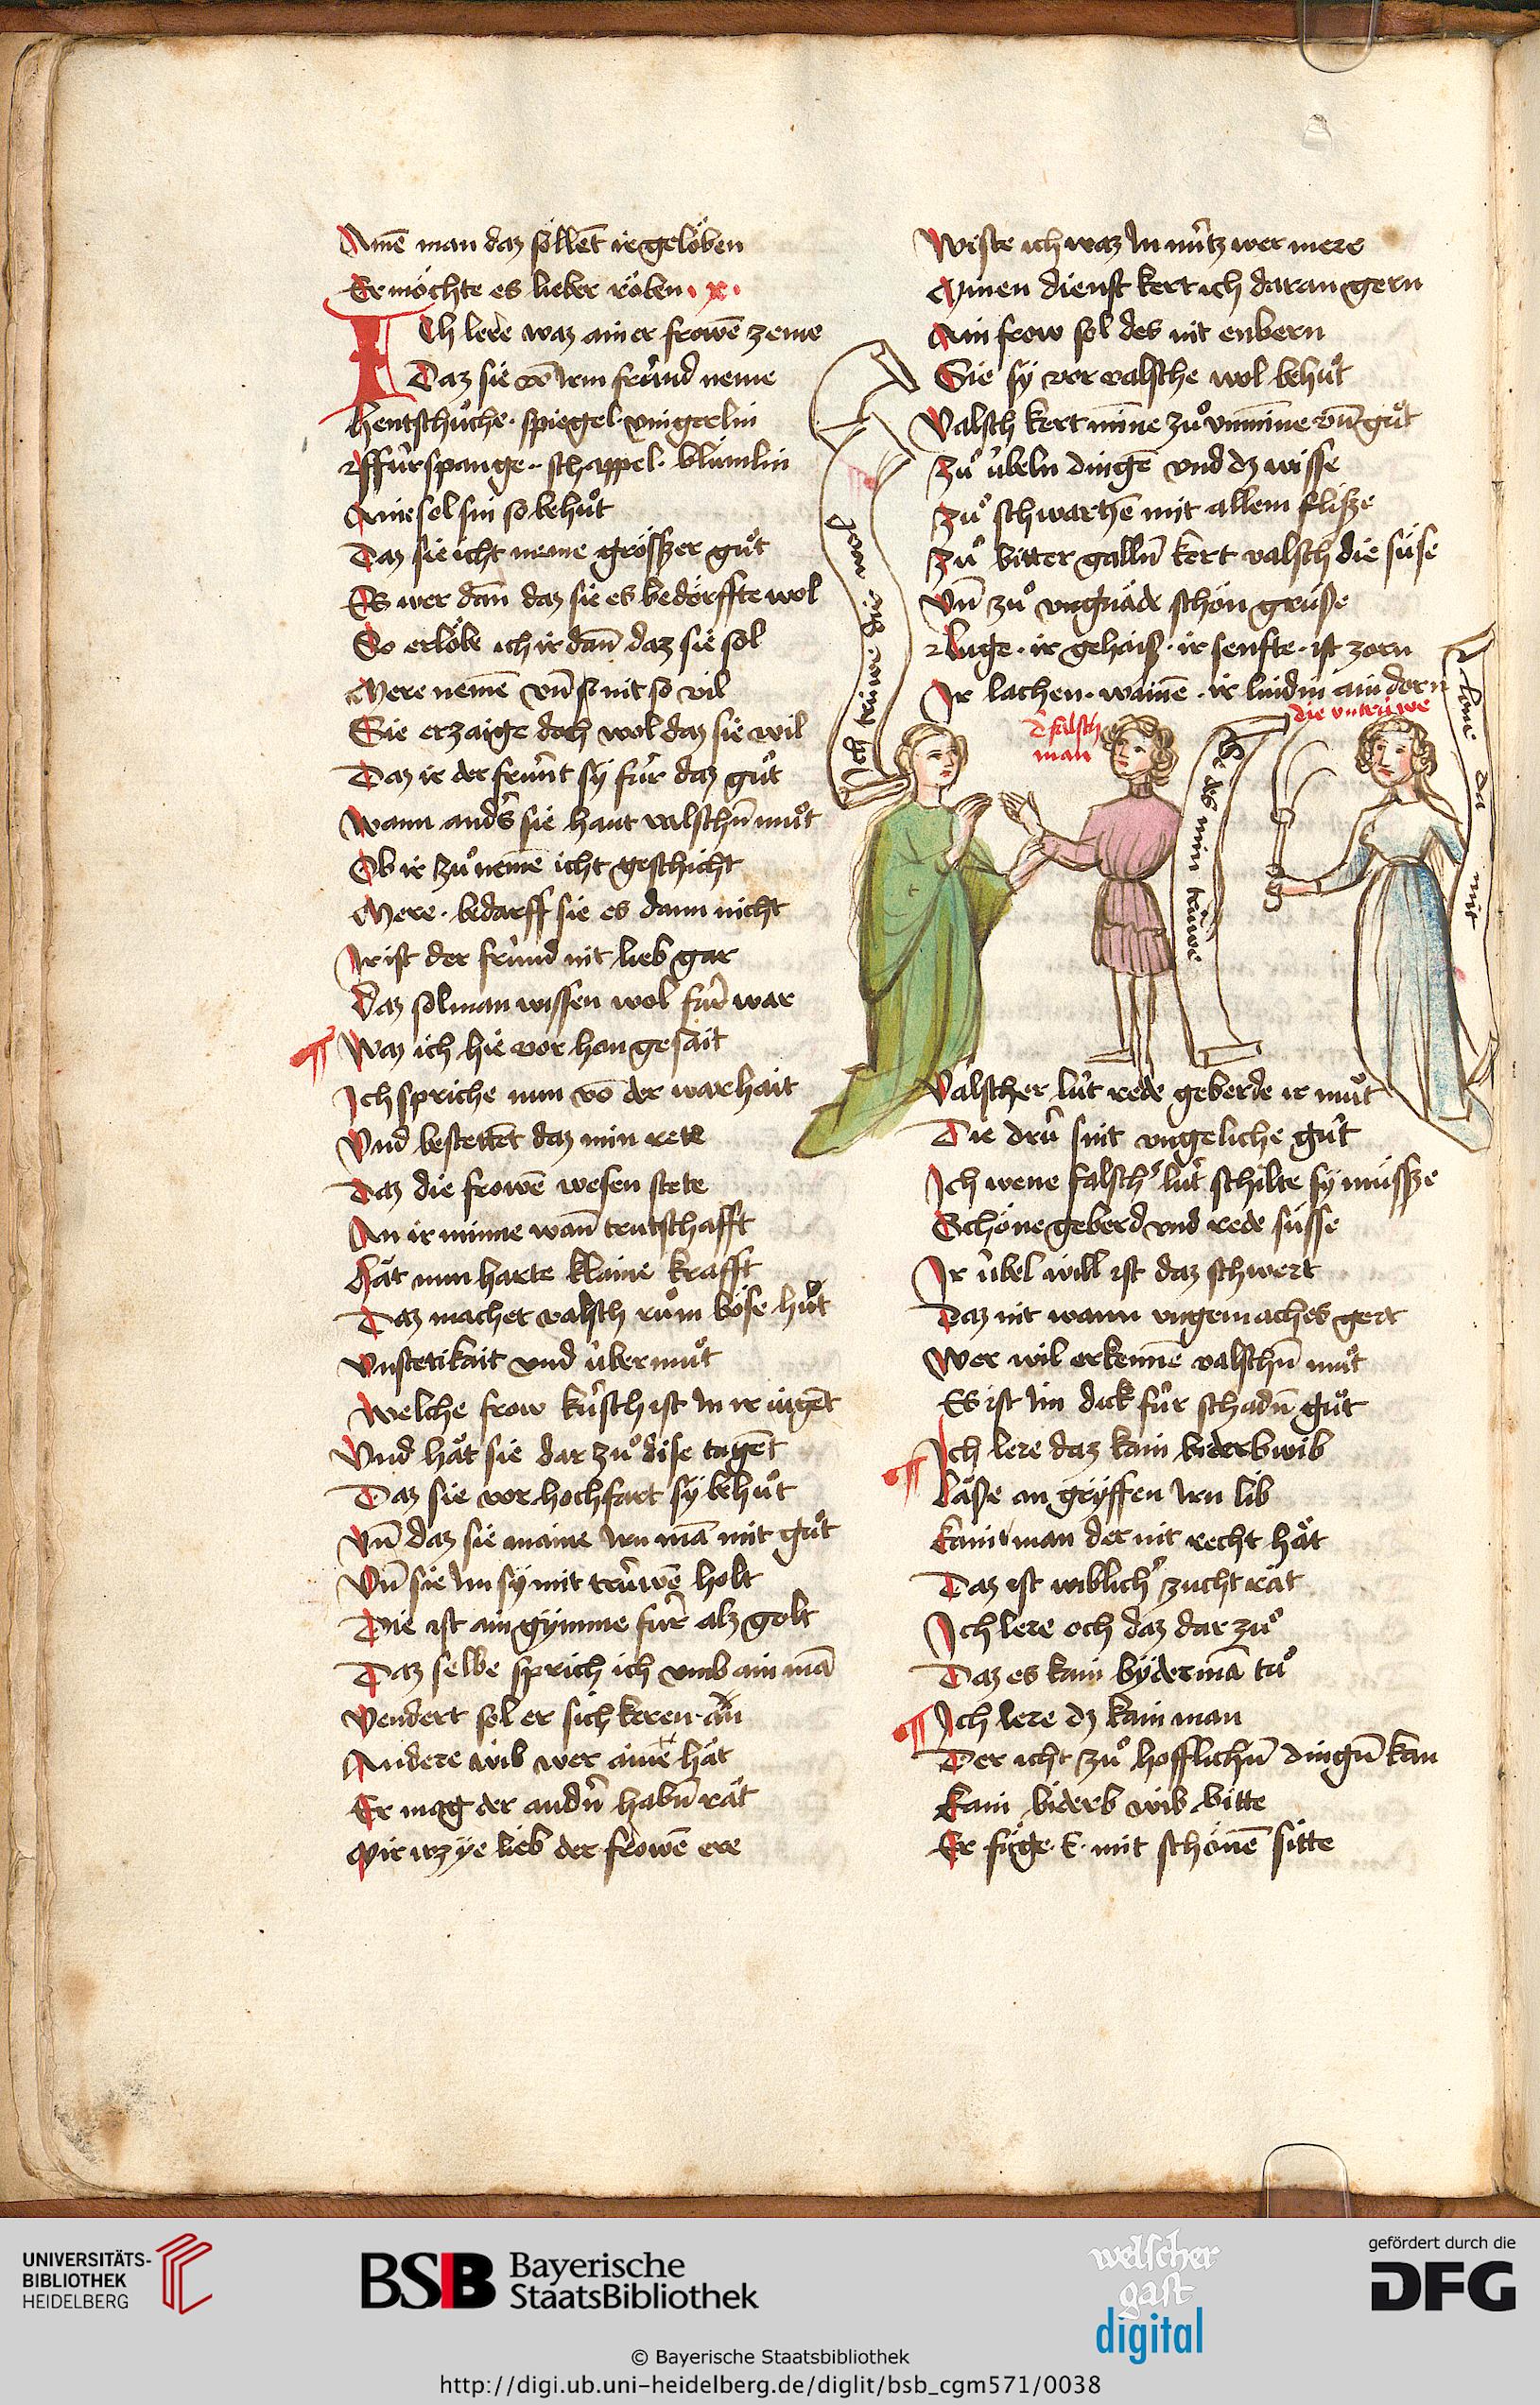 Amē man daz sóllēt ir gelöben
Er möchte es lieber röben · x ·
Ich lere waz ainer frowē zeme
Daz sie vō irm frúnd neme
Hentschůche · spiegel · vingerlin
ffúrspange · schappel · blůmlin
Aine sol sin so behůt
Daz sie icht neme grósszer gůt
Es wer dañ daz sie es bedörffte wol
So erlöbe ich ir dañ daz sie sol
Mere nemē vñ so nit so vil
Sie erzaige doch wol daz sie wil
Daz ir der frúnt sy fúr daz gůt
Wann anders sie hant valschn̄ můt
Ob ir zů nemē icht geschicht
Mere · bedarff sie es dann nicht
Ir ist der frúnd nit lieb gar
Daz sol man wissen wol fúr war
¶ Waz ich hie vor han gesait
Ich spriche nun vō der warhait
Vnd bestettet daz min rete
Daz die frowē wesen stete
An ir minne wañ trutschafft
Hät nun harte klaine krafft
Daz machet valsch rům böse hůt
Vnstetikait vnd úbermůt
Welche frow kúsch ist In ir iugēt
Vnd hät sie dar zů dise tugēt
Daz sie vor hochfart sy behůt
Vñ daz sie maine irn mā mit gůt
Vñ sie im sy mit trúwē holt
Die ist ain gymme fúr alz golt
Daz selbe sprich ich vmb ain mā
Vendert sol er sich keren an
Andere wib wer aine hät
Er mag der andn̄ habn̄ rät
Mir wz ye lieb der frowē ere
Wiste ich waz In nútz wer mere
Minen dienst kert ich daran gern
Ain frow sol des nit enbern
Sie sy vor valsche wol behůt
Valsch kert minne zů vnminne vñ gůt
Zů úbeln dingē vnd dz wisse
Zů schwarhē mit allem flisze
Zů bitter galln̄ kert valsch die süse
Vñ zů vngnäde schön grüse
Luge · ir gehaiß · ir senfte · ist zorn
Ir lachen · wainē · ir lindin ain dorn
ich trúwe dir wol
d falsch
man
die vntrúwe
min trúwe
lone du mir
Valscher lút rede geberde ir můt
Die drú sint vngeliche gůt
Ich wene falschr lút schilte sy müssze
Schöne geberd vnd rede süsse
Ir úbel will ist daz schwert
Daz nit wann vngemaches gert
Wer wil erkennē valschn̄ můt
Es ist im dick fúr schadn̄ gůt
¶ Ich lere daz kain biderb wib
Läße an gryffen irn lib
Kain man der nit recht hät
Daz ist wiblichr zucht rät
Ich lere och daz dar zů
Daz es kain bydermā tů
¶ Ich lere dz kain man
Der icht zů hofflichn̄ dingn̄ kan
Kain biderb wib bitte
Er füge · E · mit schönē sitte
UNIVERSITÄTS-
BIBLIOTHEK
HEIDELBERG
BSB Bayerische
StaatsBibliothek
welscher
gast
digital
gefördert durch die
DFG
© Bayerische Staatsbibliothek
http://digi.ub.uni-heidelberg.de/diglit/bsb_cgm571/0038